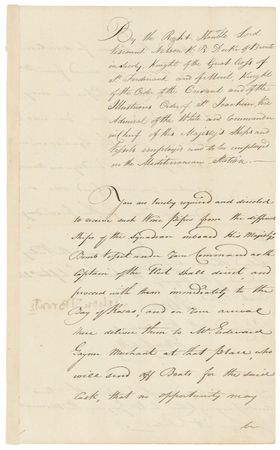 By the Right Honble Lord
Viscount Nelson K.B. Duke of Bronte
in Sicily, Knight of the Great Cross of
St Ferdinand and of Merit, Knight
of the Order of the Crescent and of the
Illustrious Order of St Joachim, Vice
Admiral of the White and Commander
in Chief of His Majesty's Ships and
Vessels employed and to be employed
in the Mediterranean Station.
You are hereby required and directed
to receive such Wine Pipes from the different
Ships of the Squadron onboard His Majesty's
Bomb Vessel under Your Command as the
Captain of the Fleet shall direct and
proceed with them immediately to the
Bay of Rosas, and on Your arrival
here deliver them to Mr Edward
Gayner Merchant at that place who
will send off Boats for the said
Cask, that no opportunity may
be